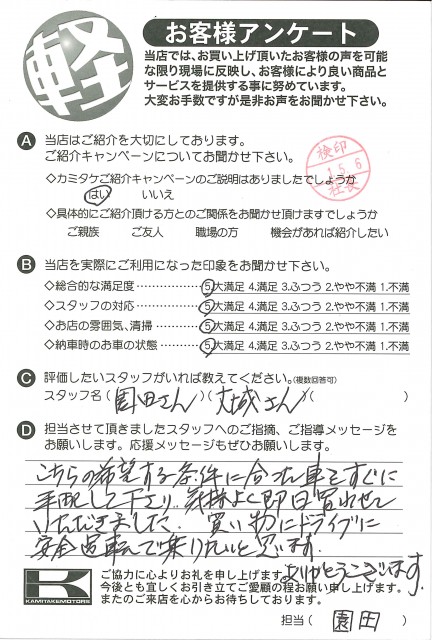 軽
お客様アンケート
当店では、お買い上げ頂いたお客様の声を可能
な限り現場に反映し、お客様により良い商品と
サービスを提供する事に努めています。
大変お手数ですが是非お声をお聞かせ下さい。
A 当店はご紹介を大切にしております。
ご紹介キャンペーンについてお聞かせ下さい。
検印
1.5.6
社長
◇カミタケご紹介キャンペーンのご説明はありましたでしょうか
はい いいえ
◇具体的にご紹介頂ける方とのご関係をお聞かせ頂けますでしょうか
ご親族 ご友人 職場の方 機会があれば紹介したい
B 当店を実際にご利用になった印象をお聞かせ下さい。
◇総合的な満足度……………5.大満足 4.満足 3.ふつう 2.やや不満 1.不満
◇スタッフの対応……………5.大満足 4.満足 3.ふつう 2.やや不満 1.不満
◇お店の雰囲気、清掃………5.大満足 4.満足 3.ふつう 2.やや不満 1.不満
◇納車時のお車の状態………5.大満足 4.満足 3.ふつう 2.やや不満 1.不満
C 評価したいスタッフがいれば教えてください。(複数回答可)
スタッフ名(園田さん)(大城さん)( )
D 担当させて頂きましたスタッフへのご指摘、ご指導メッセージを
お願いします。応援メッセージもぜひお願いします。
こちらの希望する条件に合った車をすぐに
手配して下さり、金額よく即日買わせて
いただきました。買い物にドライブに
安全運転で乗りたいと思います。
ありがとうございます。
K
KAMITAKEMOTORS
ご協力に心よりお礼を申し上げます。
今後とも宜しくお引き立てご愛顧の程お願い申し上げます。
またのご来店を心からお待ちしております。
担当(園田)